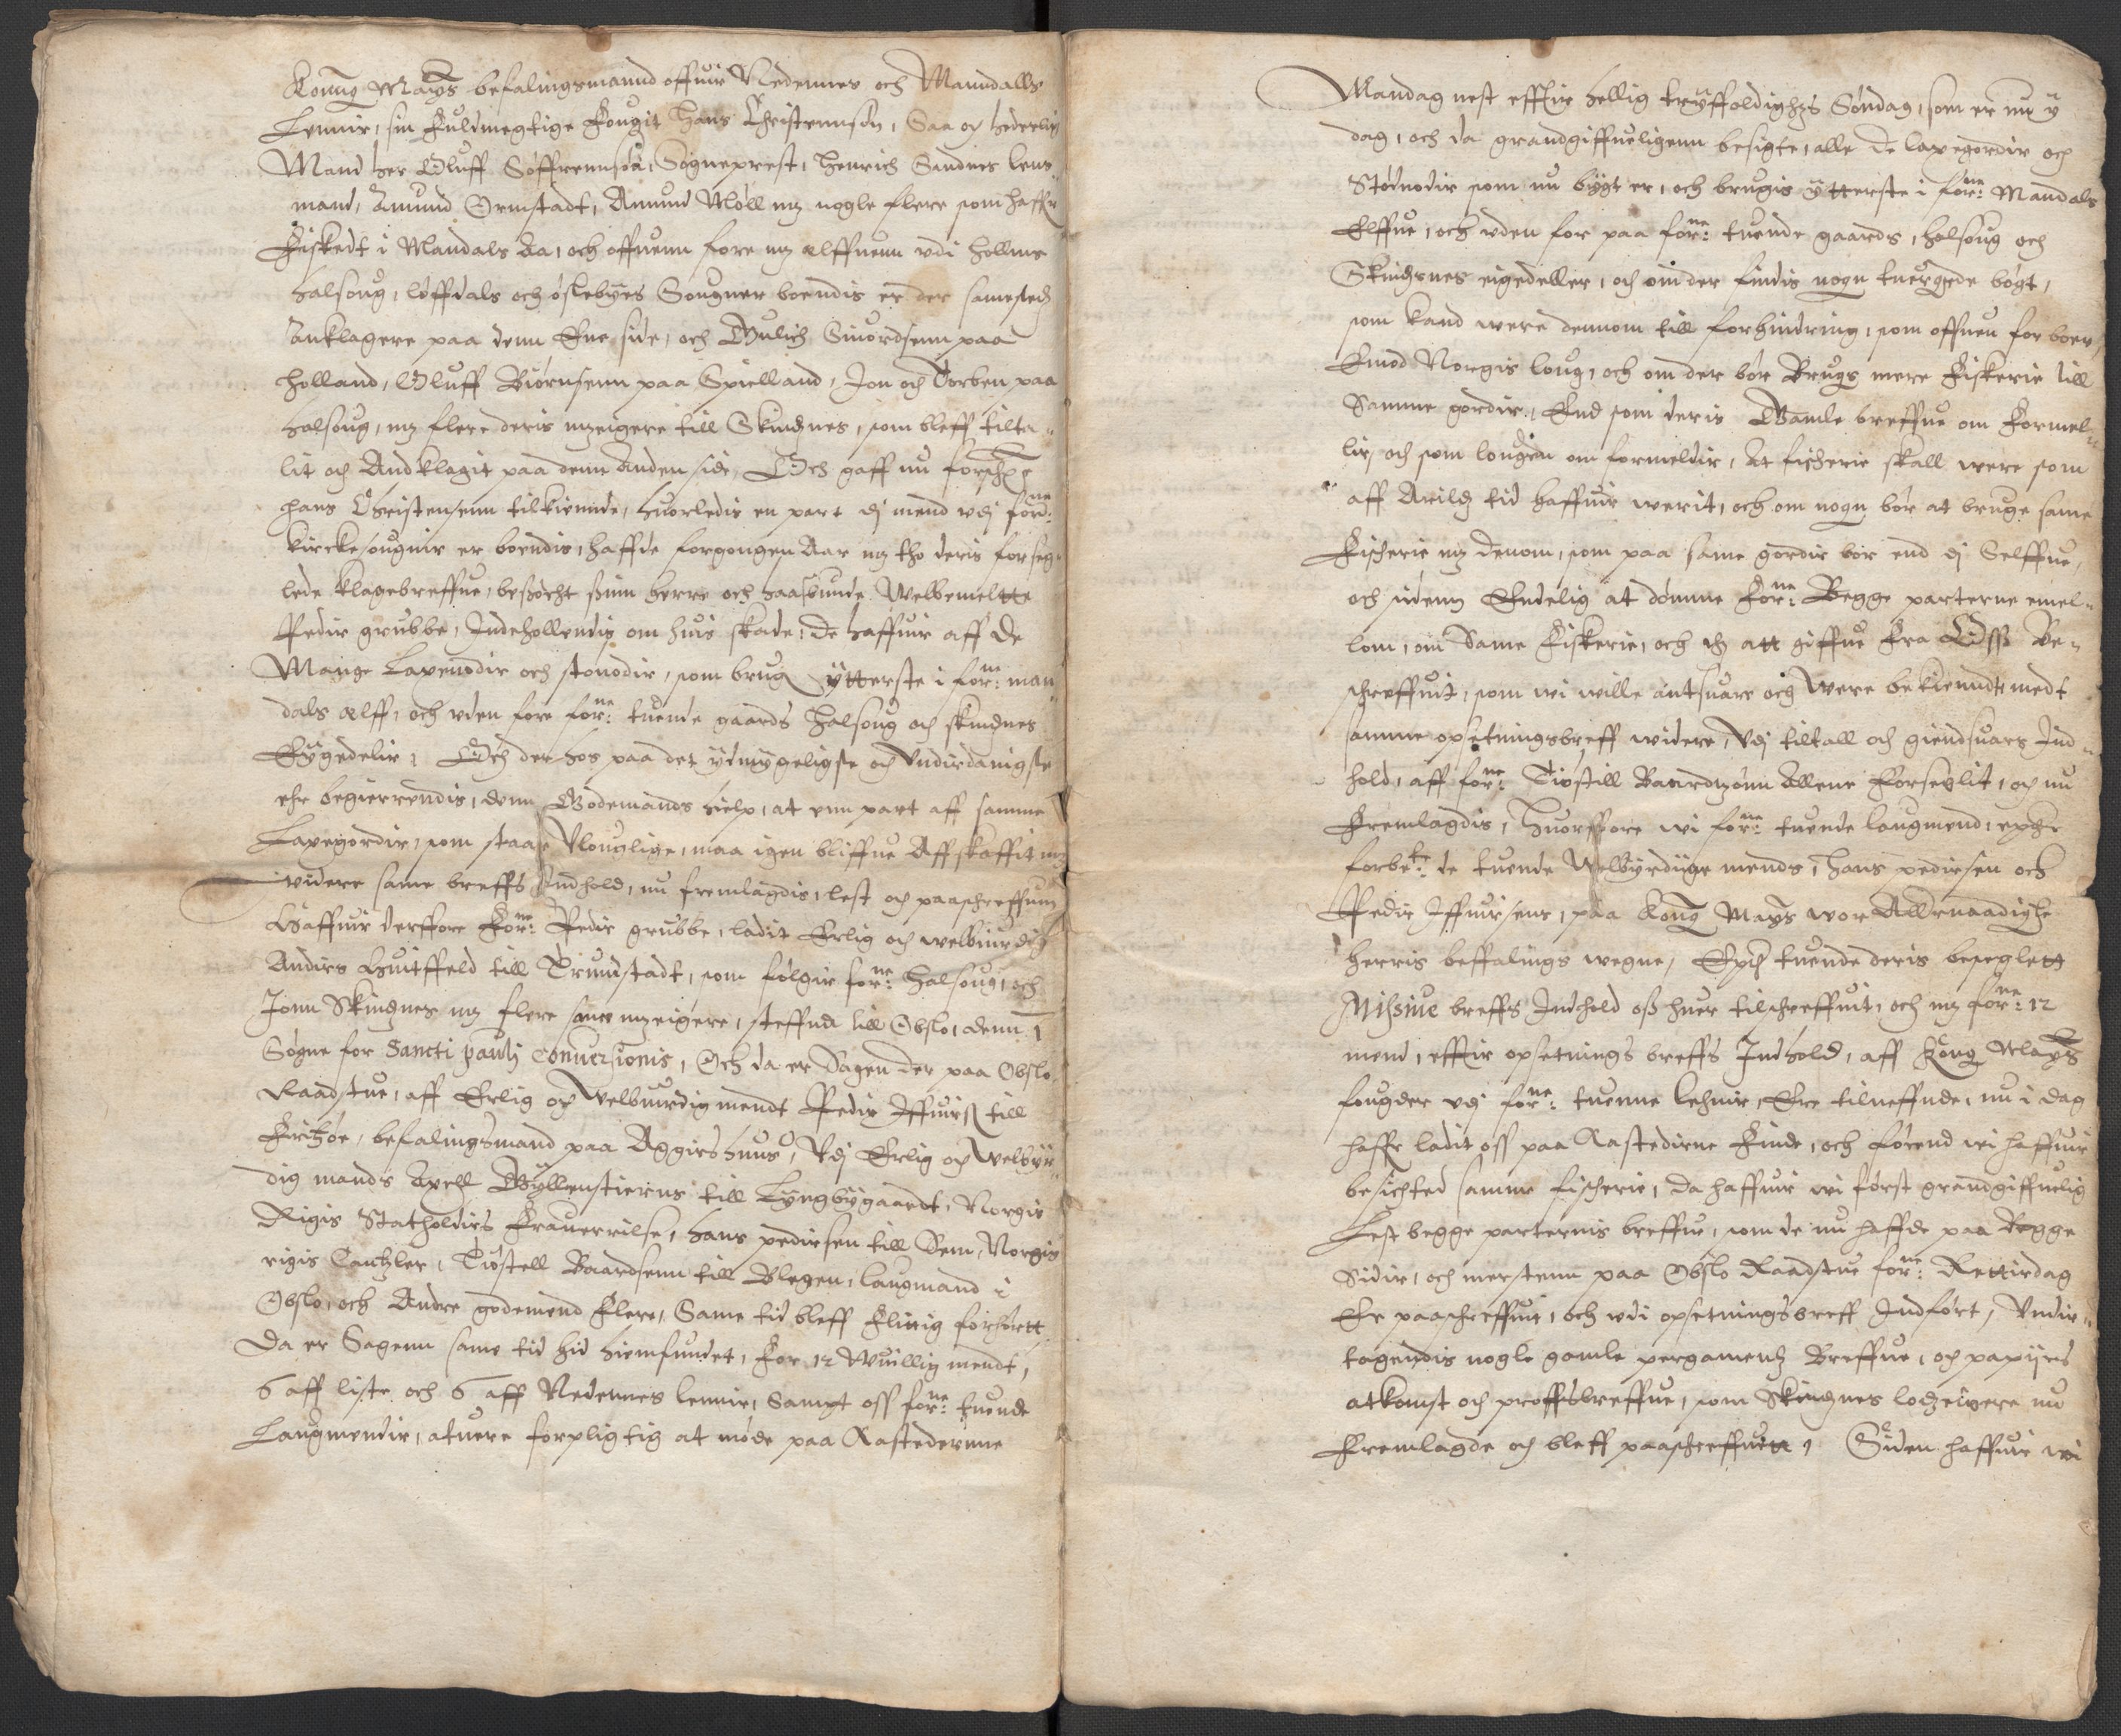 Konng Maÿs befalingsmannd offuir Nedennes och Manndalls
Lennir, sin Fuldmegtige Fougit Hans Christennsøn, Saa och hederlig
Mand her Oluff Søffrennsøn, Sogneprest, Henrich Sindnes lens¬
mand, Amund Ormstadt, Amund Møll mz nogle flere som haffr
Fiskedt i Mandals Aa, och offuenn fore mz elffuenn vdi Hollms
Halsoug, løffdals och øslebyes Sougner boendis er der samesteds
Anklagere paa denn Ene side, och Gulich Siuordsenn paa
Holland, Oluff Biørnsenn paa Spielland, Jon och Torben paa
Halsoug, mz flere deris mzeigere till Skindznes, som bleff tilta¬
lit och Andklagit paa denn Anden side, Och gaff nu forschr
Hans Christensenn tilkiennde, huorledis en part dj mend vdj forne:
kirckesougnir er boendis, haffde forgongen Aar mz tho deris forseg¬
lede klagebreffue, besøcht ssinn herre och haasbunde Welbemeltte
Pedir grubbe, Indehollendis om huis skade, de haffuir aff de
Mange Laxenodir och stonodir, som brugs ytterste i forne: man¬
dals elff, och vden fore forne: tuende gaards Halsoug och skindznes
Eygedelir, Och der hos paa det ydmygeligste och Vndirdanigste
ehr begierrendis, denn Godemands hielp, at enn part aff samme
Laxegordir, som staar Vlouglige, maa igen bliffue Affskaffit mz
videre same breffs Indhold, nu fremlagdis, lest och paaschreffuen
Haffuir derffore forne: Pedir grubbe, ladit Erlig och welbiurdig
Andirs Huitffeld till Trundstadt, som følgir forne: Halsoug, och
Jonn Skindznes mz flere same mzeigere, steffnd till Obslo, denn 1
Søgne for Sancti Pauli Conuersionis, Och da er Sagen der paa Obslo
Raadstue, aff Erlig och welbiurdig mendt Pedir Iffuirs till
Fritzøe, befalingsmand paa Aggirshuus, Vdj Erlig och welbyr¬
dig mands Axell Gyllenstierns till Lyngbygaardt, Norgis
Rigis Statholdirs Frauerrilse, Hans pedirsen till Sem, Norgis
rigis Cantzler, Tiøstell Baardsenn till Blegen, laugmand i
Obslo, och Andre godemend Flere, Same tid bleff Flittig forhørtt
Da er Sagenn same tid hid hiemfundet, For 12 Wuillig mendt,
6 aff liste och 6 aff Nedennes lennir, Sampt oss forne: tuende
Laugmendir, atuere forpligtig at møde paa Aastederne
Mandag nest effthir hellig tryffoldighzs Søndag, som er nu y
dag, och da grandgiffueligenn besigte, alle de laxegordir och
Stødnodir som nu bygt er, och brugis ytterste i forne: Mandals
Elffue, och vden for paa forne: tuende gaards, Halsoug och
Skindznes eigedeller, och om der findis nogn tuergde bøgt,
som kand were dennom till forhindring, som offuen for boer,
Emod Norgis loug, och om der bør Brugs mere Fiskerie till
Samme gordir, End som deris Gamle breffue om Formel¬
lir, och som lougen om formeldir, At fischerie skall were som
aff Arildz tid haffuir werit, och om nogn bør at bruge same
Fischerie mz denom, som paa same gordir bør end dj Selffue,
och sidenn Endelig at dømme forne: Begge parterne emel¬
lom, om Same Fiskerie, och dz att giffue Fra Oss Be¬
schreffuit, som wi wille antsuare och Were bekiendt medt
samme opsetningsbreff widere, Vdj tiltall och giendsuars Ind¬
hold, aff forne: Tiøstill Baardzønn Allene Forseglit, och nu
Fremlagdis, Huorfore wi forne: tuende laugmend, epther
forbete: de tuende Welbyrdiige mends, Hans pedirsen och
Pedir Iffuirsens, paa Kong Mays wor Allernaadighe
Herris beffalings wegne, Epther tuende deris beseglett
Missiue breffs Indhold oss huer tilschreffuit, och mz forne: 12
mend, effter opsetnings breffs Indhold, aff Kong Mays
fougder vdj forne: tuenne lehnir, Ere tilneffnde, nu i dag
haffr ladit oss paa Aastederne Finde, och førend wi haffuir
besichted samme fischerie, da haffuir wi først grandgiffuelig
Lest begge parternis breffue, som de nu haffde paa Begge
Sidir, och mestenn paa Obslo Raadstue forne: Rettirdag
Er paaschreffuit, och vdi opsetningsbreff Indført, Vndir¬
tagendis nogle gamle pergamentz Breffue, och papiirs
atkomst och proffsbreffue, som Skindznes lodzeigere nu
Fremlagde och bleff paaschreffuett, Siden haffuir wi